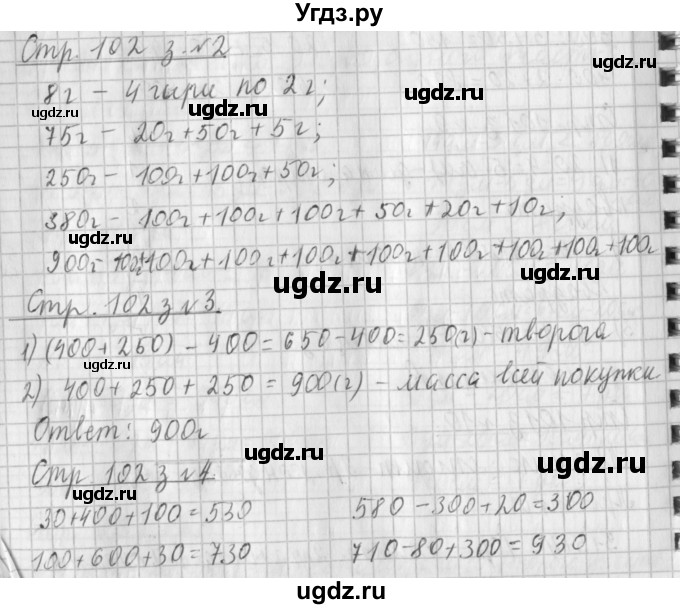 Угдз.ру
Стр. 102 з. №2
8г – 4 гири по 2г;
75г – 20г+50г+5г;
250г – 100г+100г+50г;
380г – 100г+100г+100г+50г+20г+10г;
900г – 100г+100г+100г+100г+100г+100г+100г+100г+100г
Стр. 102 з №3.
1) (400+250) – 400 = 650 – 400 = 250(г) – творога
2) 400+250+250 = 900(г) – масса всей покупки
Ответ: 900г
Стр 102 з №4.
30+400+100=530 580–300+20=300
100+600+30=730 710–80+300=930
ugdz.ru
ugdz.ru
ugdz.ru
ugdz.ru
ugdz.ru
ugdz.ru
ugdz.ru
ugdz.ru
ugdz.ru
ugdz.ru
ugdz.ru
ugdz.ru
ugdz.ru
ugdz.ru